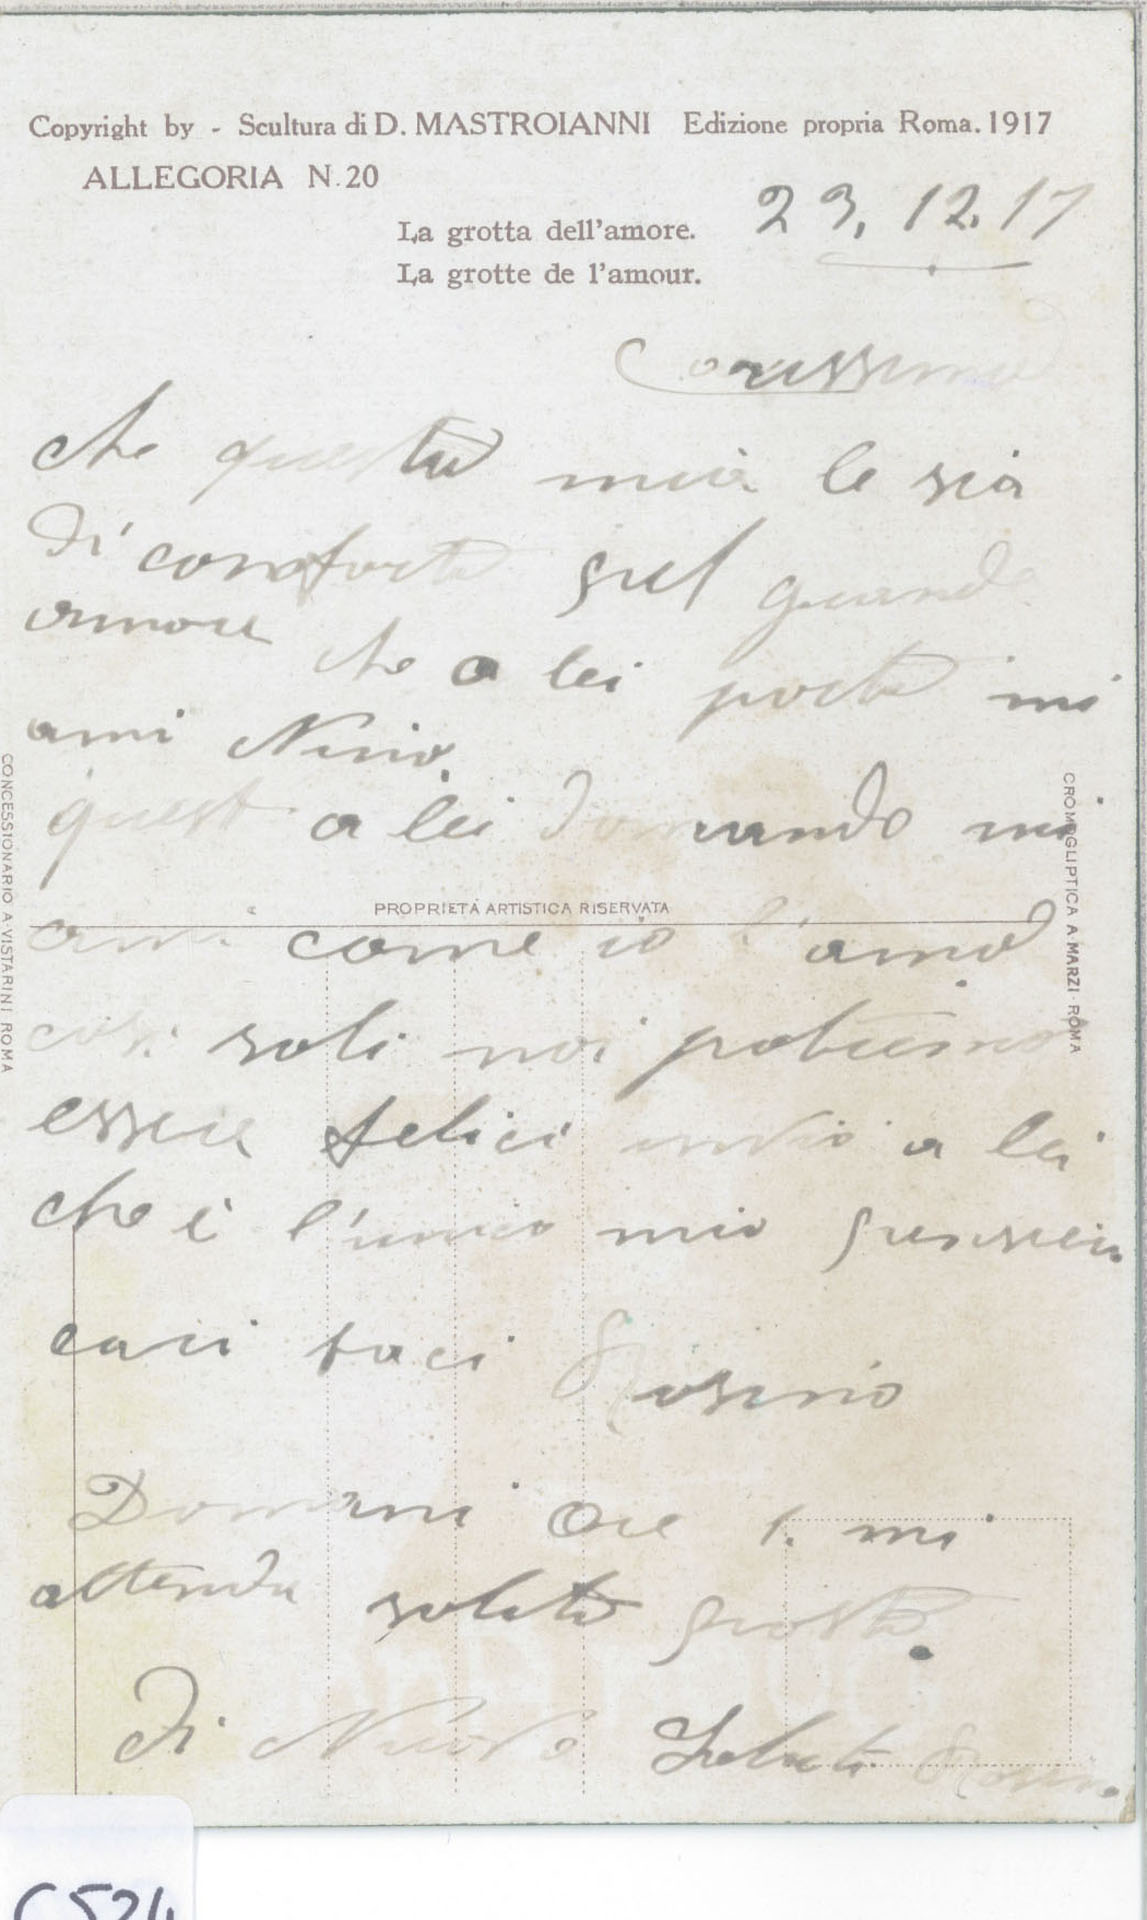 Copyright by - Scultura di D. MASTROIANNI Edizione propria Roma. 1917
ALLEGORIA N. 20
La grotta dell'amore.
La grotte de l'amour.
23. 12. 17
Carissimo
che questa mia le sia
di conforto pel grande
amore che a lei porto mi
ami Nino.
quest a lei domando mi
PROPRIETÀ ARTISTICA RISERVATA
ami come io l'amo
così soli noi potremo
essere felici invio a lei
che è l'unico mio pensier
cari baci Rosino
Domani Ore 1. mi
attenda solito posto.
Di Nuovo Saluti
CONCESSIONARIO A. VISTARINI ROMA
CROMOGLIPTICA A. MARZI - ROMA
C524